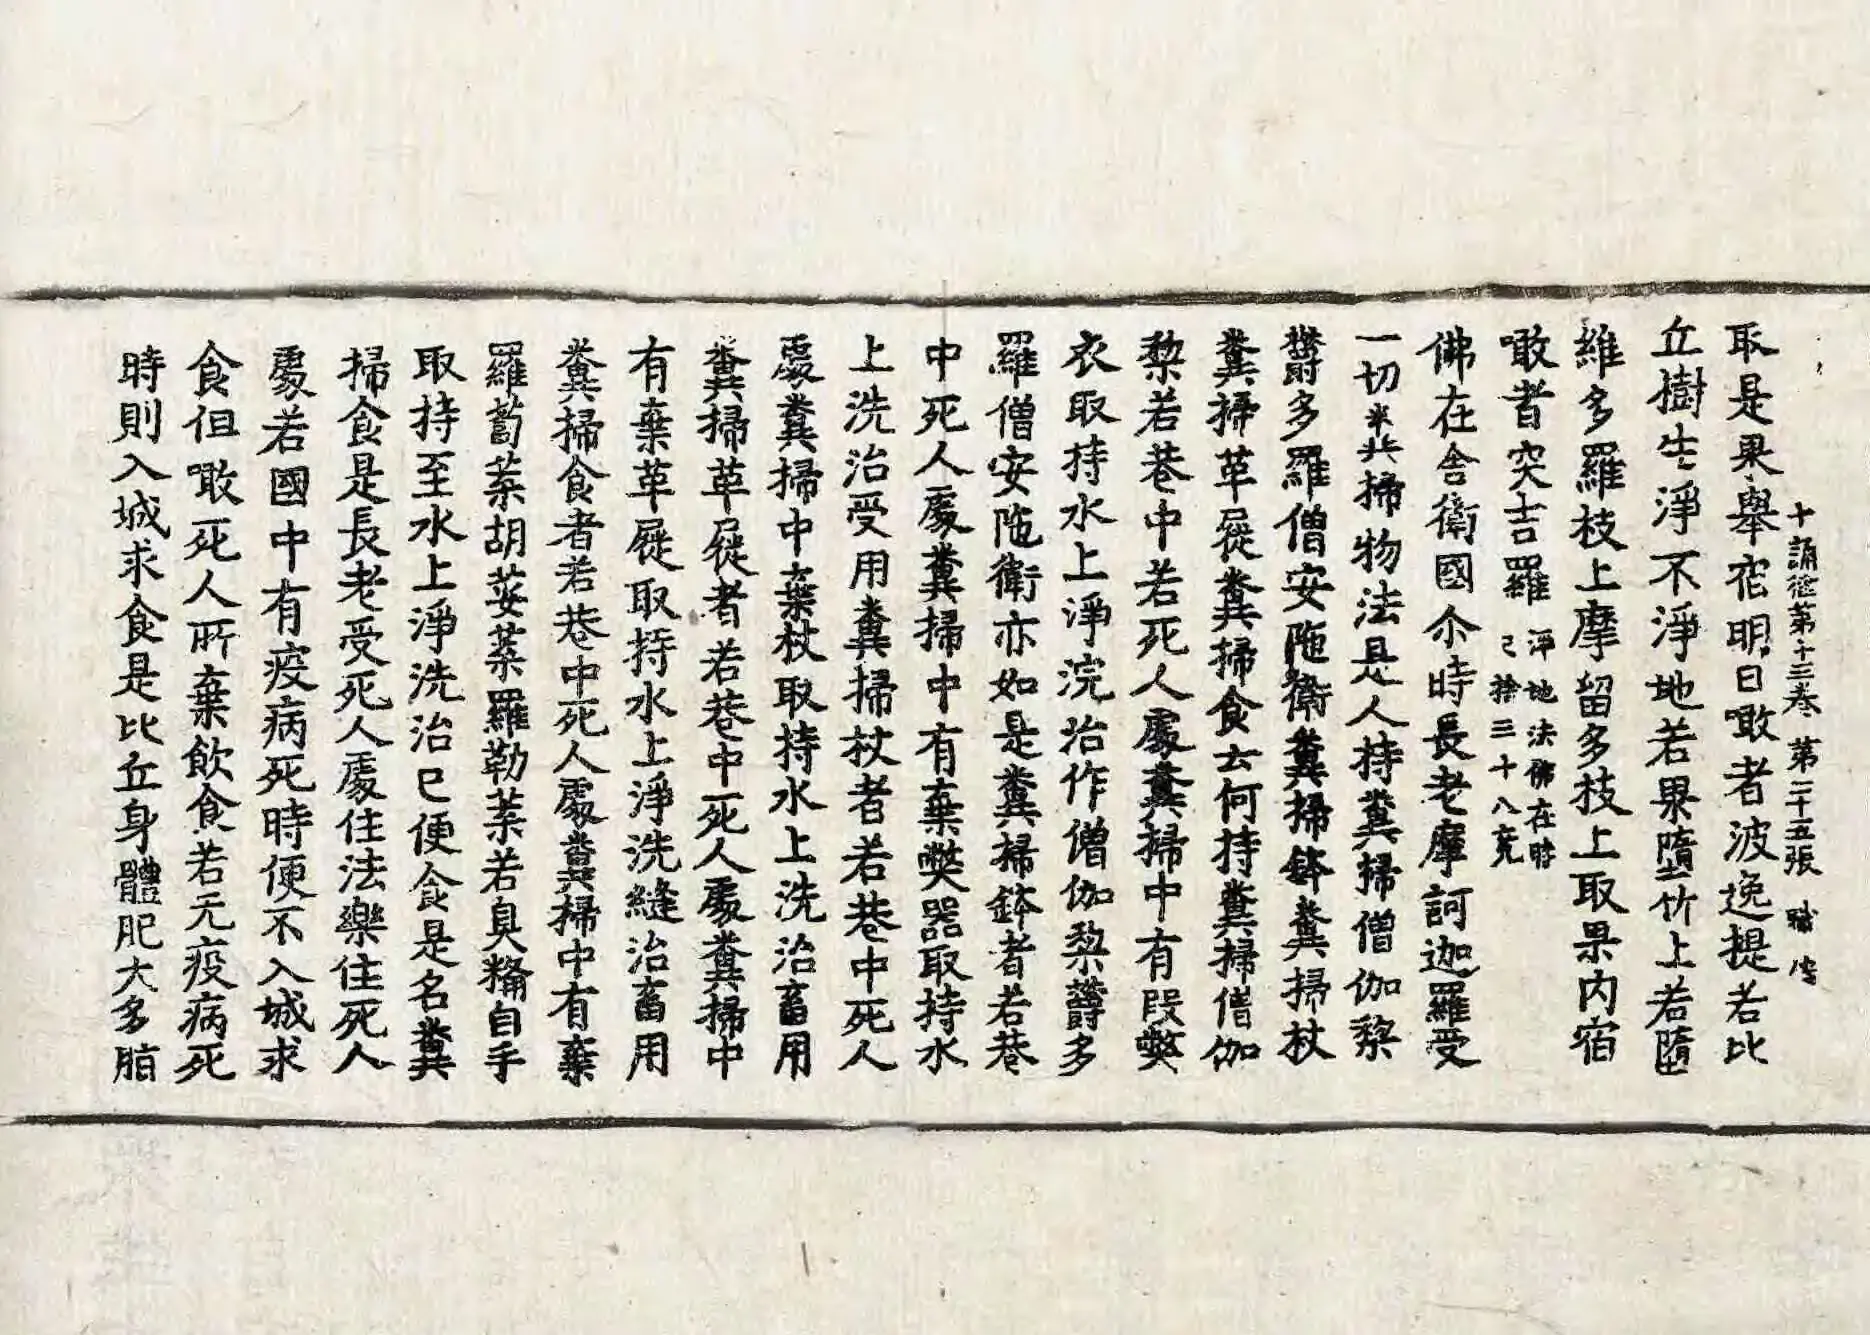 十誦律第十三卷 第二十五張 職
取是果舉宿明日噉者波逸提若比
丘樹生淨不淨地若果墮竹上若墮
維多羅枝上摩留多枝上取果內宿
噉者突吉羅 淨地法佛在時
己捨三十八竟
佛在舍衛國尒時長老摩訶迦羅受
一切糞掃物法是人持糞掃僧伽梨
欝多羅僧安陁衛糞掃鉢糞掃杖
糞掃革屣糞掃食云何持糞掃僧伽
梨若巷中若死人處糞掃中有段弊
衣取持水上淨浣治作僧伽梨欝多
羅僧安陁衛亦如是糞掃鉢者若巷
中死人處糞掃中有棄弊器取持水
上洗治受用糞掃杖者若巷中死人
處糞掃中棄杖取持水上洗治畜用
糞掃革屣者若巷中死人處糞掃中
有棄革屣取持水上淨洗縫治畜用
糞掃食者若巷中死人處糞掃中有棄
羅蔔葉胡荽葉羅勒葉若臭糒自手
取持至水上淨洗治已便食是名糞
掃食是長老受死人處住法樂住死人
處若國中有疫病死時便不入城求
食但噉死人所棄飲食若无疫病死
時則入城求食是比丘身體肥大多脂